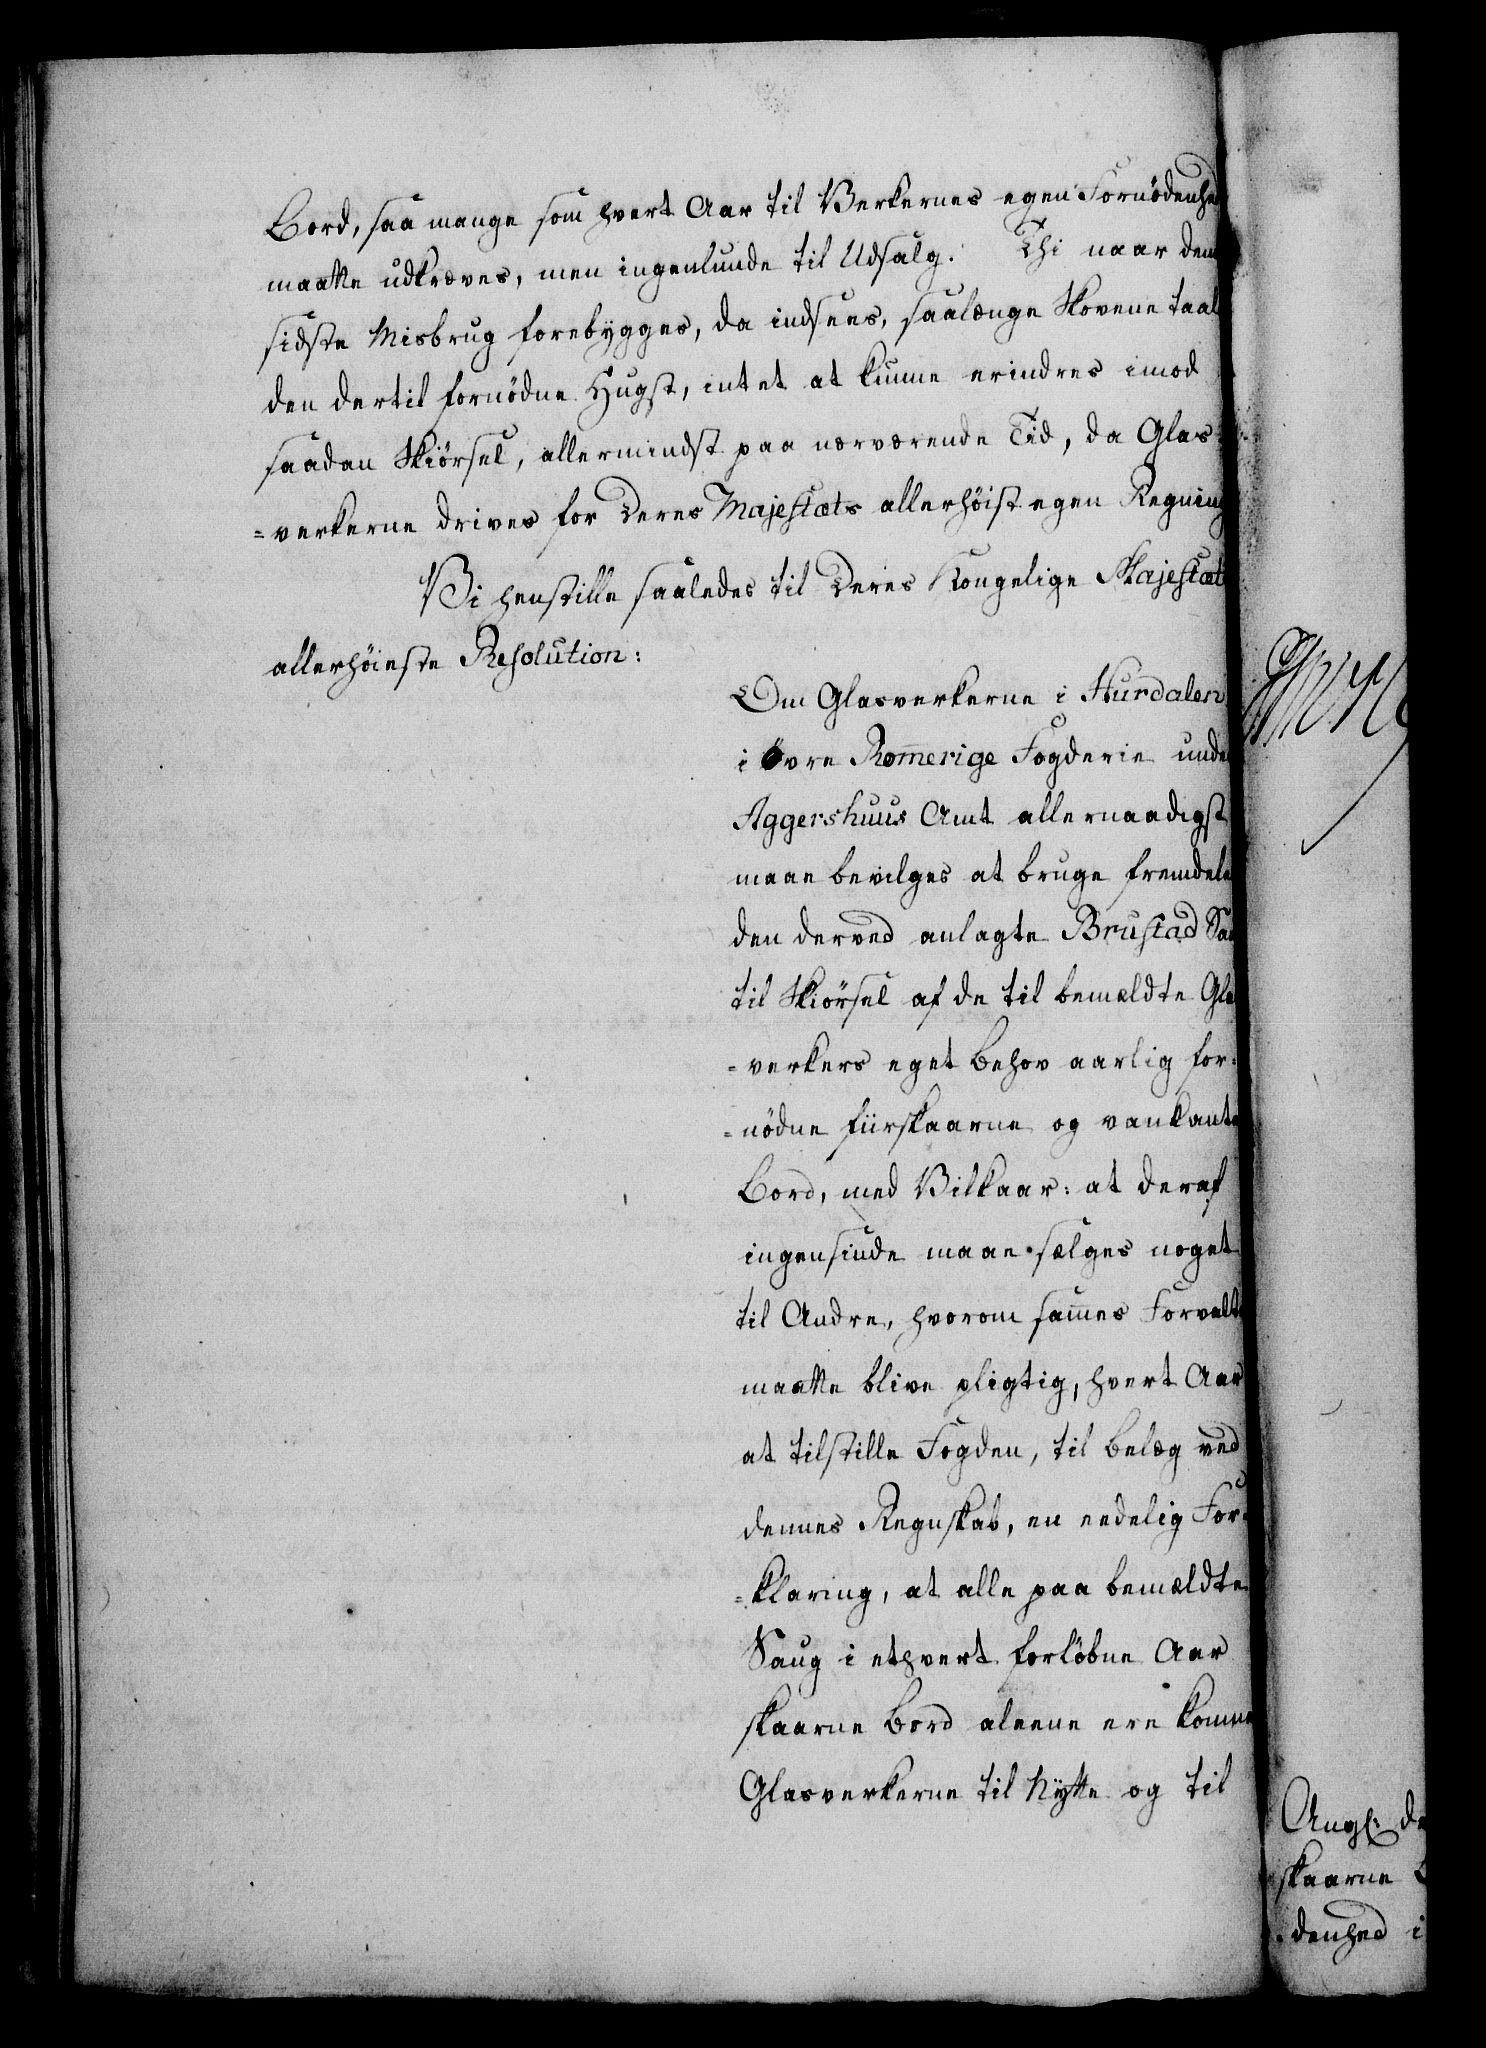 Bord, saa mange som hvert Aar til Verkernes egen Fornödenhed
maatte udkræves, men ingenlunde til Udsalg. Thi naar den
sidste Misbrug forebygges, da indsees, saalænge Skovene taal
den dertil fornödne Hugst, intet at kunne erindres imod
saadan Skiörsel, allermindst paa nærværende Tid, da Glas-
=verkerne drives for Deres Majestæts allerhöist egen Regning
Vi henstille saaledes til Deres Kongelige Majestæts
allerhöieste Resolution:
Om Glasverkerne i Hurdalen
i Övre Romerige Fogderie unde
Aggershuus Amt allernaadigst
maae bevilges at bruge fremdele
den derved anlagte Brustad Sau
til Skiörsel af de til bemældte Gla
=verkers eget Behov aarlig for=
=nödne fiirskaarne og vankante
Bord, med Vilkaar: at deraf
ingensinde maae sælges noget
til Andre, hvorom sam̅es Forvalt
maatte blive pligtig, hvert Aar
at tilstille Fogden, til Belæg ved
dennes Regnskab, en eedelig For=
=klaring, at alle paa bemældte
Saug i ethvert forlöbne Aar
skaarne Bord aleene ere komne
Glasverkerne til Nytte og til
Angl: de
skaarne B
=denhed i